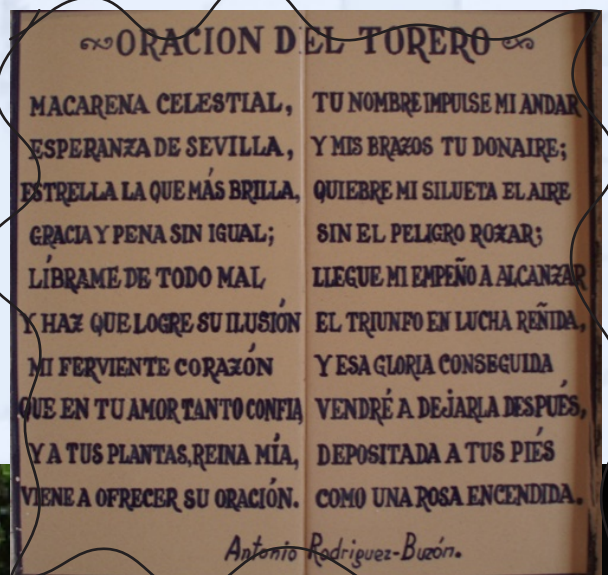 ORACION DEL TORERO
MACARENA CELESTIAL,
ESPERANZA DE SEVILLA,
ESTRELLA LA QUE MÁS BRILLA,
GRACIA Y PENA SIN IGUAL;
LÍBRAME DE TODO MAL
Y HAZ QUE LOGRE SU ILUSIÓN
MI FERVIENTE CORAZÓN
QUE EN TU AMOR TANTO CONFIA
Y A TUS PLANTAS, REINA MÍA,
VIENE A OFRECER SU ORACIÓN.
TU NOMBRE IMPULSE MI ANDAR
Y MIS BRAZOS TU DONAIRE;
QUIEBRE MI SILUETA EL AIRE
SIN EL PELIGRO ROZAR;
LLEGUE MI EMPEÑO A ALCANZAR
EL TRIUNFO EN LUCHA REÑIDA,
Y ESA GLORIA CONSEGUIDA
VENDRÉ A DEJARLA DESPUÉS,
DEPOSITADA A TUS PIÉS
COMO UNA ROSA ENCENDIDA.
Antonio Rodriguez-Buzón.